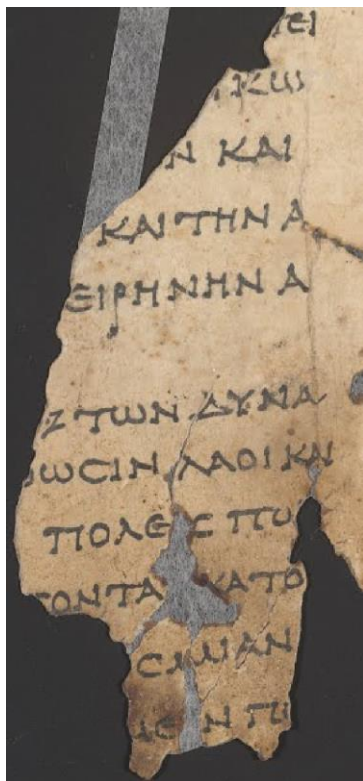 ΕΙ
ΚΩ
Ν ΚΑΙ
ΚΑΙ ΤΗΝ Α
ΕΙΡΗΝΗΝ Α
Ζ ΤΩΝ ΔΥΝΑ
ΩϹΙΝ ΛΑΟΙ ΚΑΙ
ΠΟΛΕΙϹ ΠΟ
ΤΟΝΤΑΙ ΚΑΤΟ
ϹΑΜΙΑΝ
ΕΝ ΤΩ